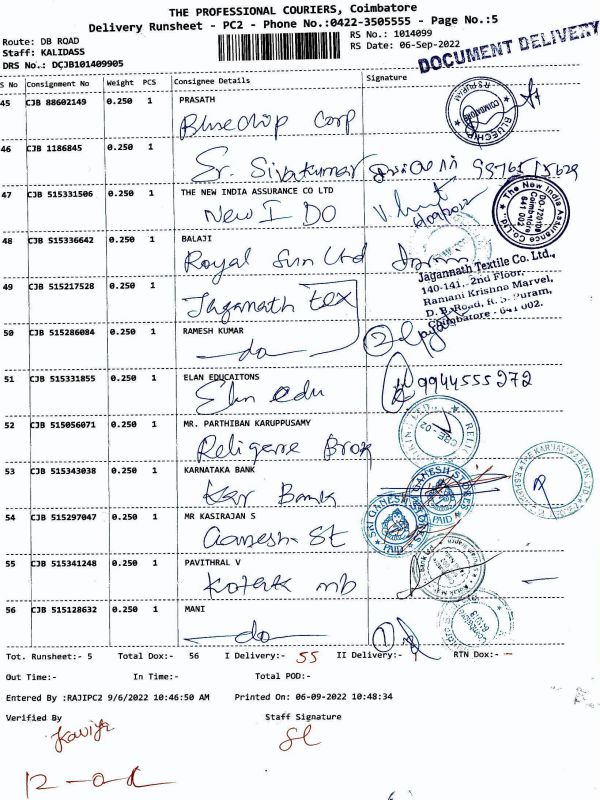 THE PROFESSIONAL COURIERS, Coimbatore
Delivery Runsheet - PC2 - Phone No.:0422-3505555 - Page No.:5
Route: DB ROAD
RS No.: 1014099
Staff: KALIDASS
RS Date: 06-Sep-2022
DRS No.: DCJB101409905
DOCUMENT DELIVERY
S No Consignment No Weight PCS Consignee Details Signature
45 CJB 88602149 0.250 1 PRASATH
Bluechip Corp
BLUECHIP COIMBATORE R S PURAM
46 CJB 1186845 0.250 1
Sr. Sivakumar
47 CJB 515331506 0.250 1 THE NEW INDIA ASSURANCE CO LTD
New I DO
The New India Assurance Co. Ltd.
Coimbatore
641 002
48 CJB 515336642 0.250 1 BALAJI
Royal Sun Ltd
49 CJB 515217528 0.250 1
Jaganath tex
Jagannath Textile Co. Ltd.,
140-141, 2nd Floor,
Ramani Krishna Marvel,
D. B. Road, R. S. Puram,
Coimbatore - 641 002.
50 CJB 515286084 0.250 1 RAMESH KUMAR
do
2
51 CJB 515331855 0.250 1 ELAN EDUCAITONS
Elan edu
9944555272
52 CJB 515056071 0.250 1 MR. PARTHIBAN KARUPPUSAMY
Religere Brok
CBE - 02
53 CJB 515343038 0.250 1 KARNATAKA BANK
Kar Bank
THE KARNATAKA BANK LTD.
54 CJB 515297047 0.250 1 MR KASIRAJAN S
Ganesh St
SRI GANESH STONES
PAID
GANESH STONES
PAID
55 CJB 515341248 0.250 1 PAVITHRAL V
Kotak mb
56 CJB 515128632 0.250 1 MANI
do
1
Tot. Runsheet:- 5 Total Dox:- 56 I Delivery:- 55 II Delivery:- 1 RTN Dox:- -
Out Time:- In Time:- Total POD:-
Entered By :RAJIPC2 9/6/2022 10:46:50 AM Printed On: 06-09-2022 10:48:34
Verified By Staff Signature
Kaviya